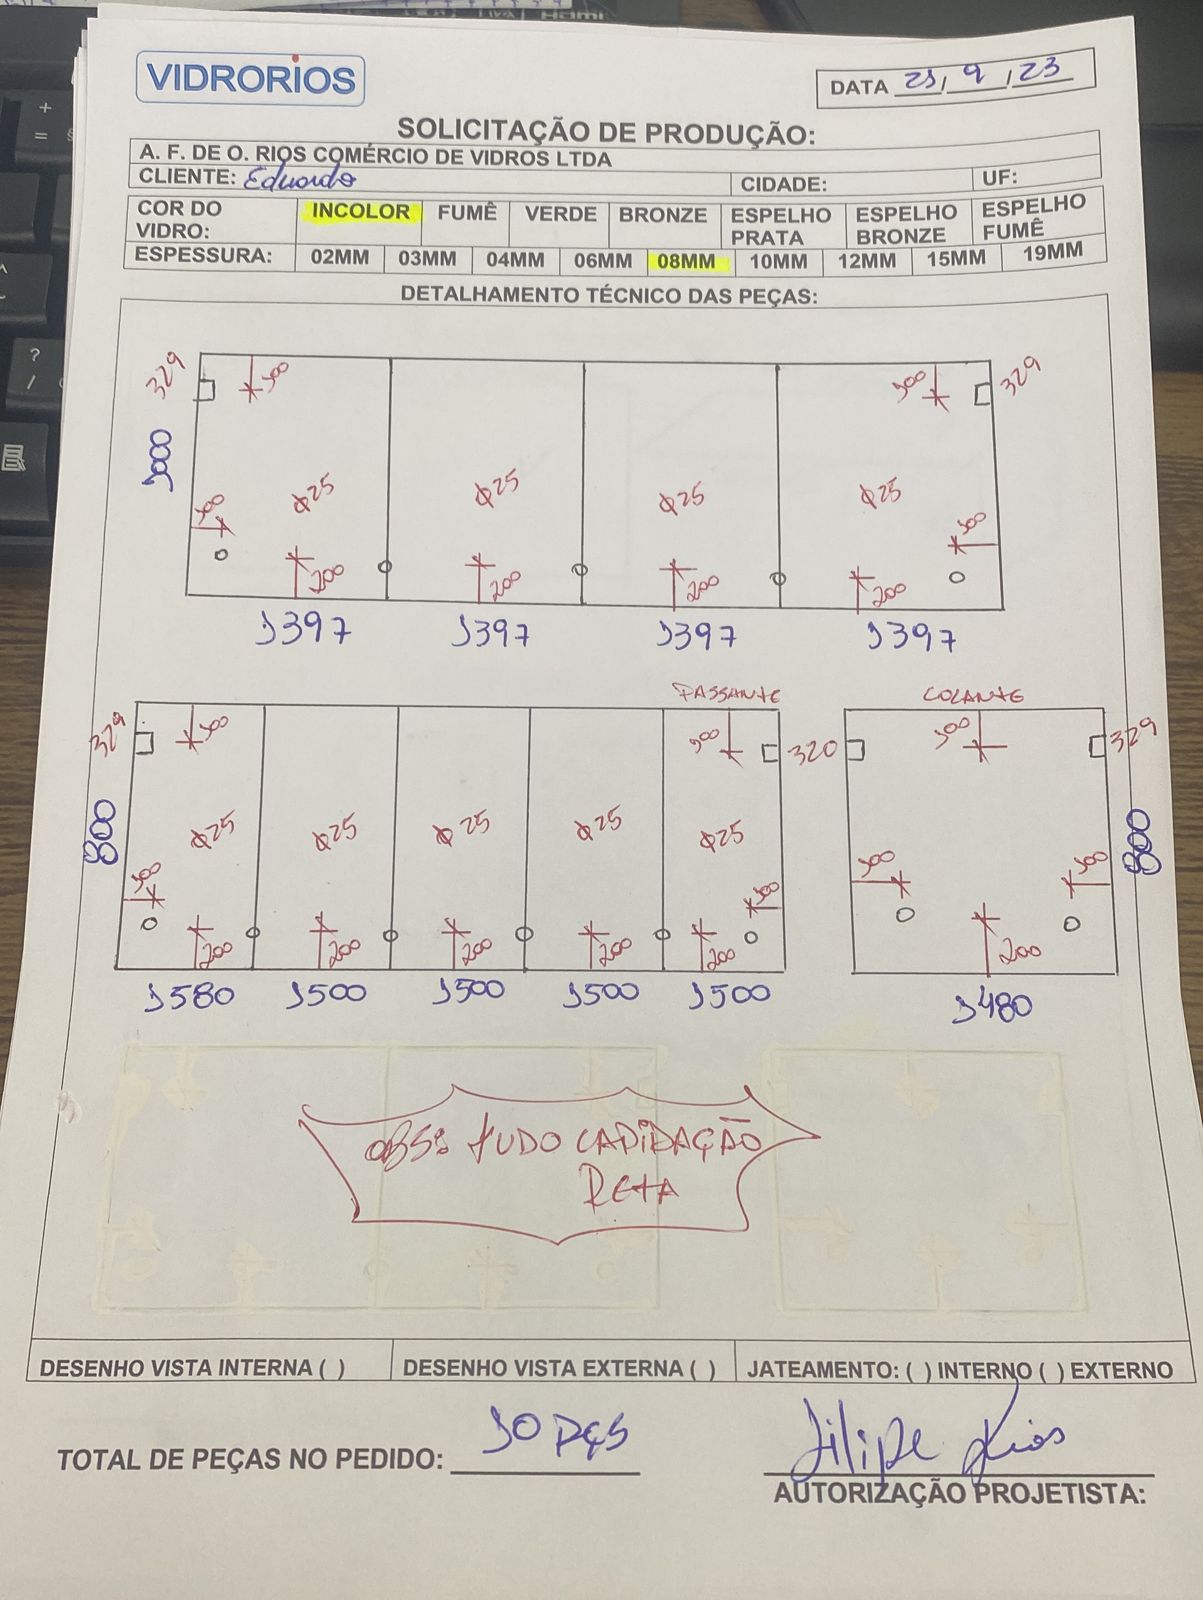 VIDRORIOS
DATA 21/9/23
SOLICITAÇÃO DE PRODUÇÃO:
A. F. DE O. RIOS COMÉRCIO DE VIDROS LTDA
CLIENTE: Eduardo CIDADE: UF:
COR DO VIDRO: INCOLOR FUMÊ VERDE BRONZE ESPELHO PRATA ESPELHO BRONZE ESPELHO FUMÊ
ESPESSURA: 02MM 03MM 04MM 06MM 08MM 10MM 12MM 15MM 19MM
DETALHAMENTO TÉCNICO DAS PEÇAS:
329 100 100 329
1000
φ25 φ25 φ25 φ25
100 100
200 200 200 200
1397 1397 1397 1397
PASSANTE COLANTE
329 100 100 320 100 329
800 φ25 φ25 φ25 φ25 φ25 800
100 100 100 100
200 200 200 200 200 200
1580 1500 1500 1500 1500 1480
OBS: TUDO LAPIDAÇÃO
RETA
DESENHO VISTA INTERNA ( ) DESENHO VISTA EXTERNA ( ) JATEAMENTO: ( ) INTERNO ( ) EXTERNO
TOTAL DE PEÇAS NO PEDIDO: 10 PÇS
Filipe Rios
AUTORIZAÇÃO PROJETISTA: